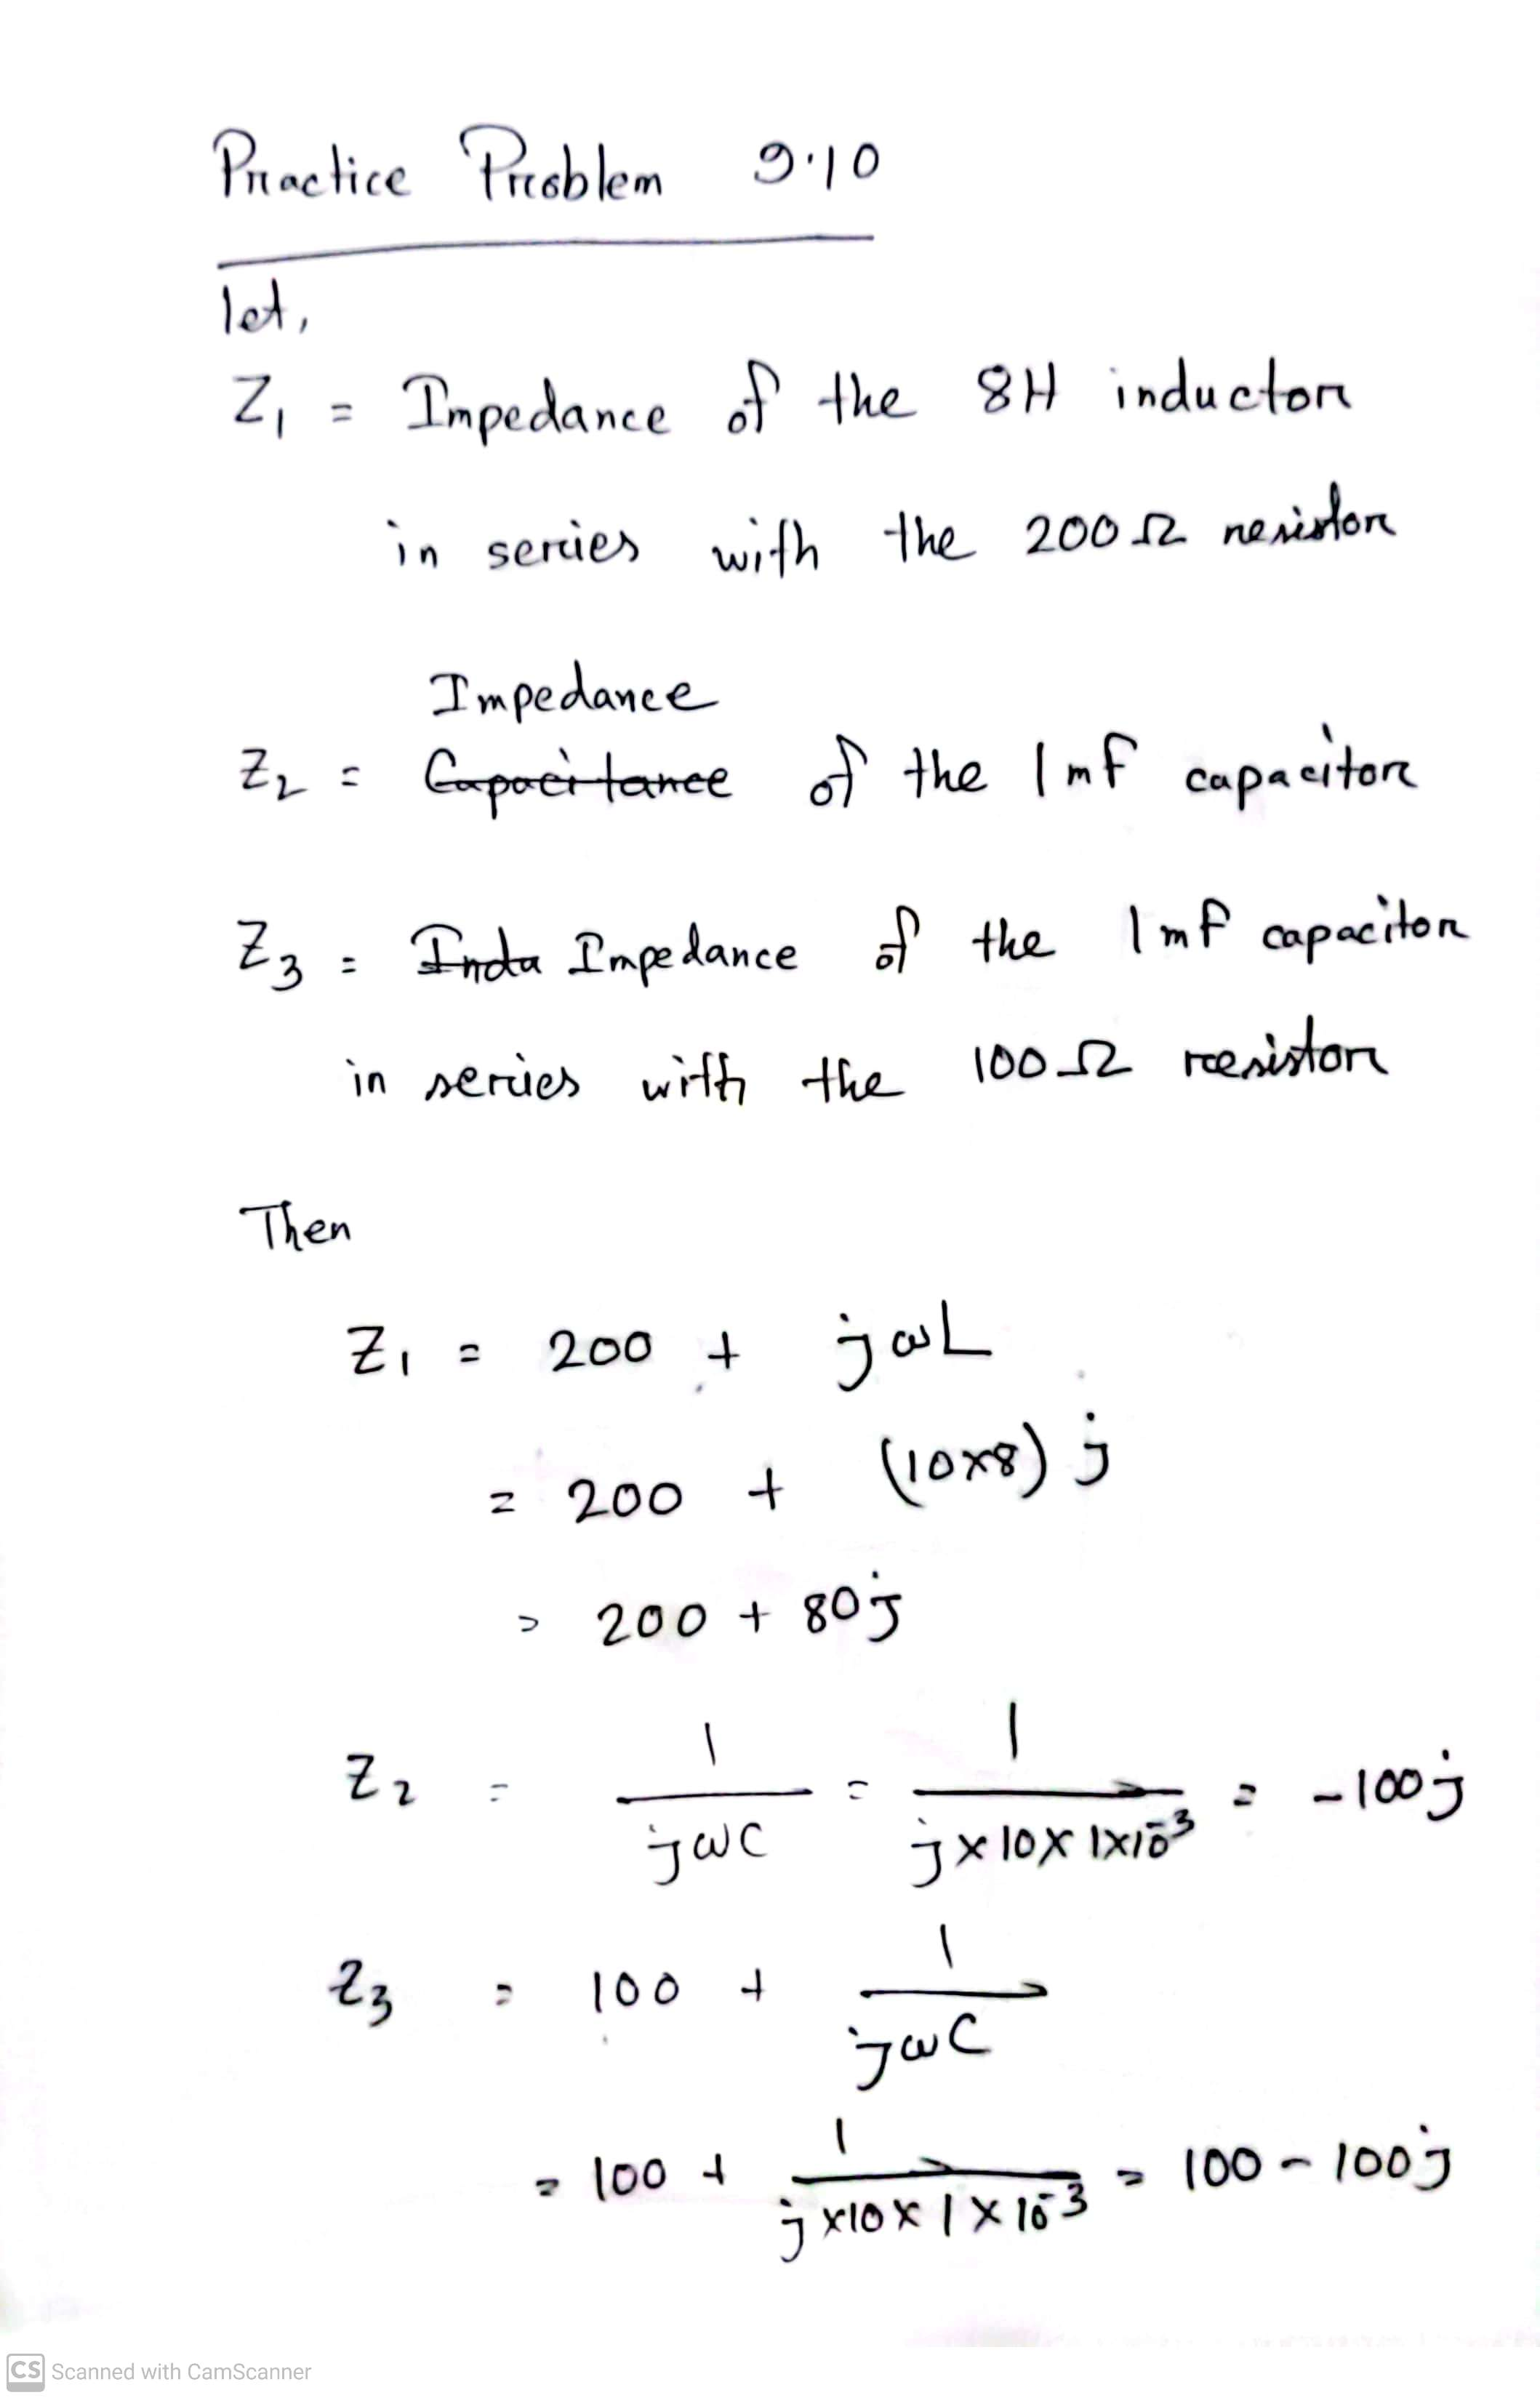 Practice Problem 9.10
let,
Z₁ = Impedance of the 8H inductor
in series with the 200Ω resistor
Impedance
Z₂ = Capacitance of the 1mF capacitor
Z₃ = Indu Impedance of the 1mF capacitor
in series with the 100Ω resistor
Then
Z₁ = 200 + jωL
= 200 + (10×8) j
= 200 + 80j
Z₂ = 1/(jωC) = 1/(j×10×1×10⁻³) = -100j
Z₃ = 100 + 1/(jωC)
= 100 + 1/(j×10×1×10⁻³) = 100 - 100j
CS Scanned with CamScanner